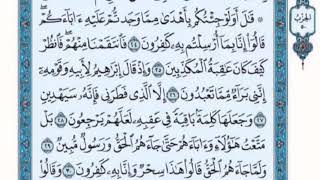 الحزب ٥٠
۞ قَٰلَ أَوَلَوْ جِئْتُكُم بِأَهْدَىٰ مِمَّا وَجَدتُّمْ عَلَيْهِ ءَابَآءَكُمْ
قَالُوٓا۟ إِنَّا بِمَآ أُرْسِلْتُم بِهِۦ كَٰفِرُونَ ٢٤ فَٱنتَقَمْنَا مِنْهُمْ فَٱنظُرْ
كَيْفَ كَانَ عَٰقِبَةُ ٱلْمُكَذِّبِينَ ٢٥ وَإِذْ قَالَ إِبْرَٰهِيمُ لِأَبِيهِ وَقَوْمِهِۦٓ
إِنَّنِى بَرَآءٌ مِّمَّا تَعْبُدُونَ ٢٦ إِلَّا ٱلَّذِى فَطَرَنِى فَإِنَّهُۥ سَيَهْدِينِ
٢٧ وَجَعَلَهَا كَلِمَةًۢ بَاقِيَةً فِى عَقِبِهِۦ لَعَلَّهُمْ يَرْجِعُونَ ٢٨ بَلْ
مَتَّعْتُ هَٰٓؤُلَآءِ وَءَابَآءَهُمْ حَتَّىٰ جَآءَهُمُ ٱلْحَقُّ وَرَسُولٌ مُّبِينٌ ٢٩
وَلَمَّا جَآءَهُمُ ٱلْحَقُّ قَالُوا۟ هَٰذَا سِحْرٌ وَإِنَّا بِهِۦ كَٰفِرُونَ ٣٠ وَقَالُوا۟